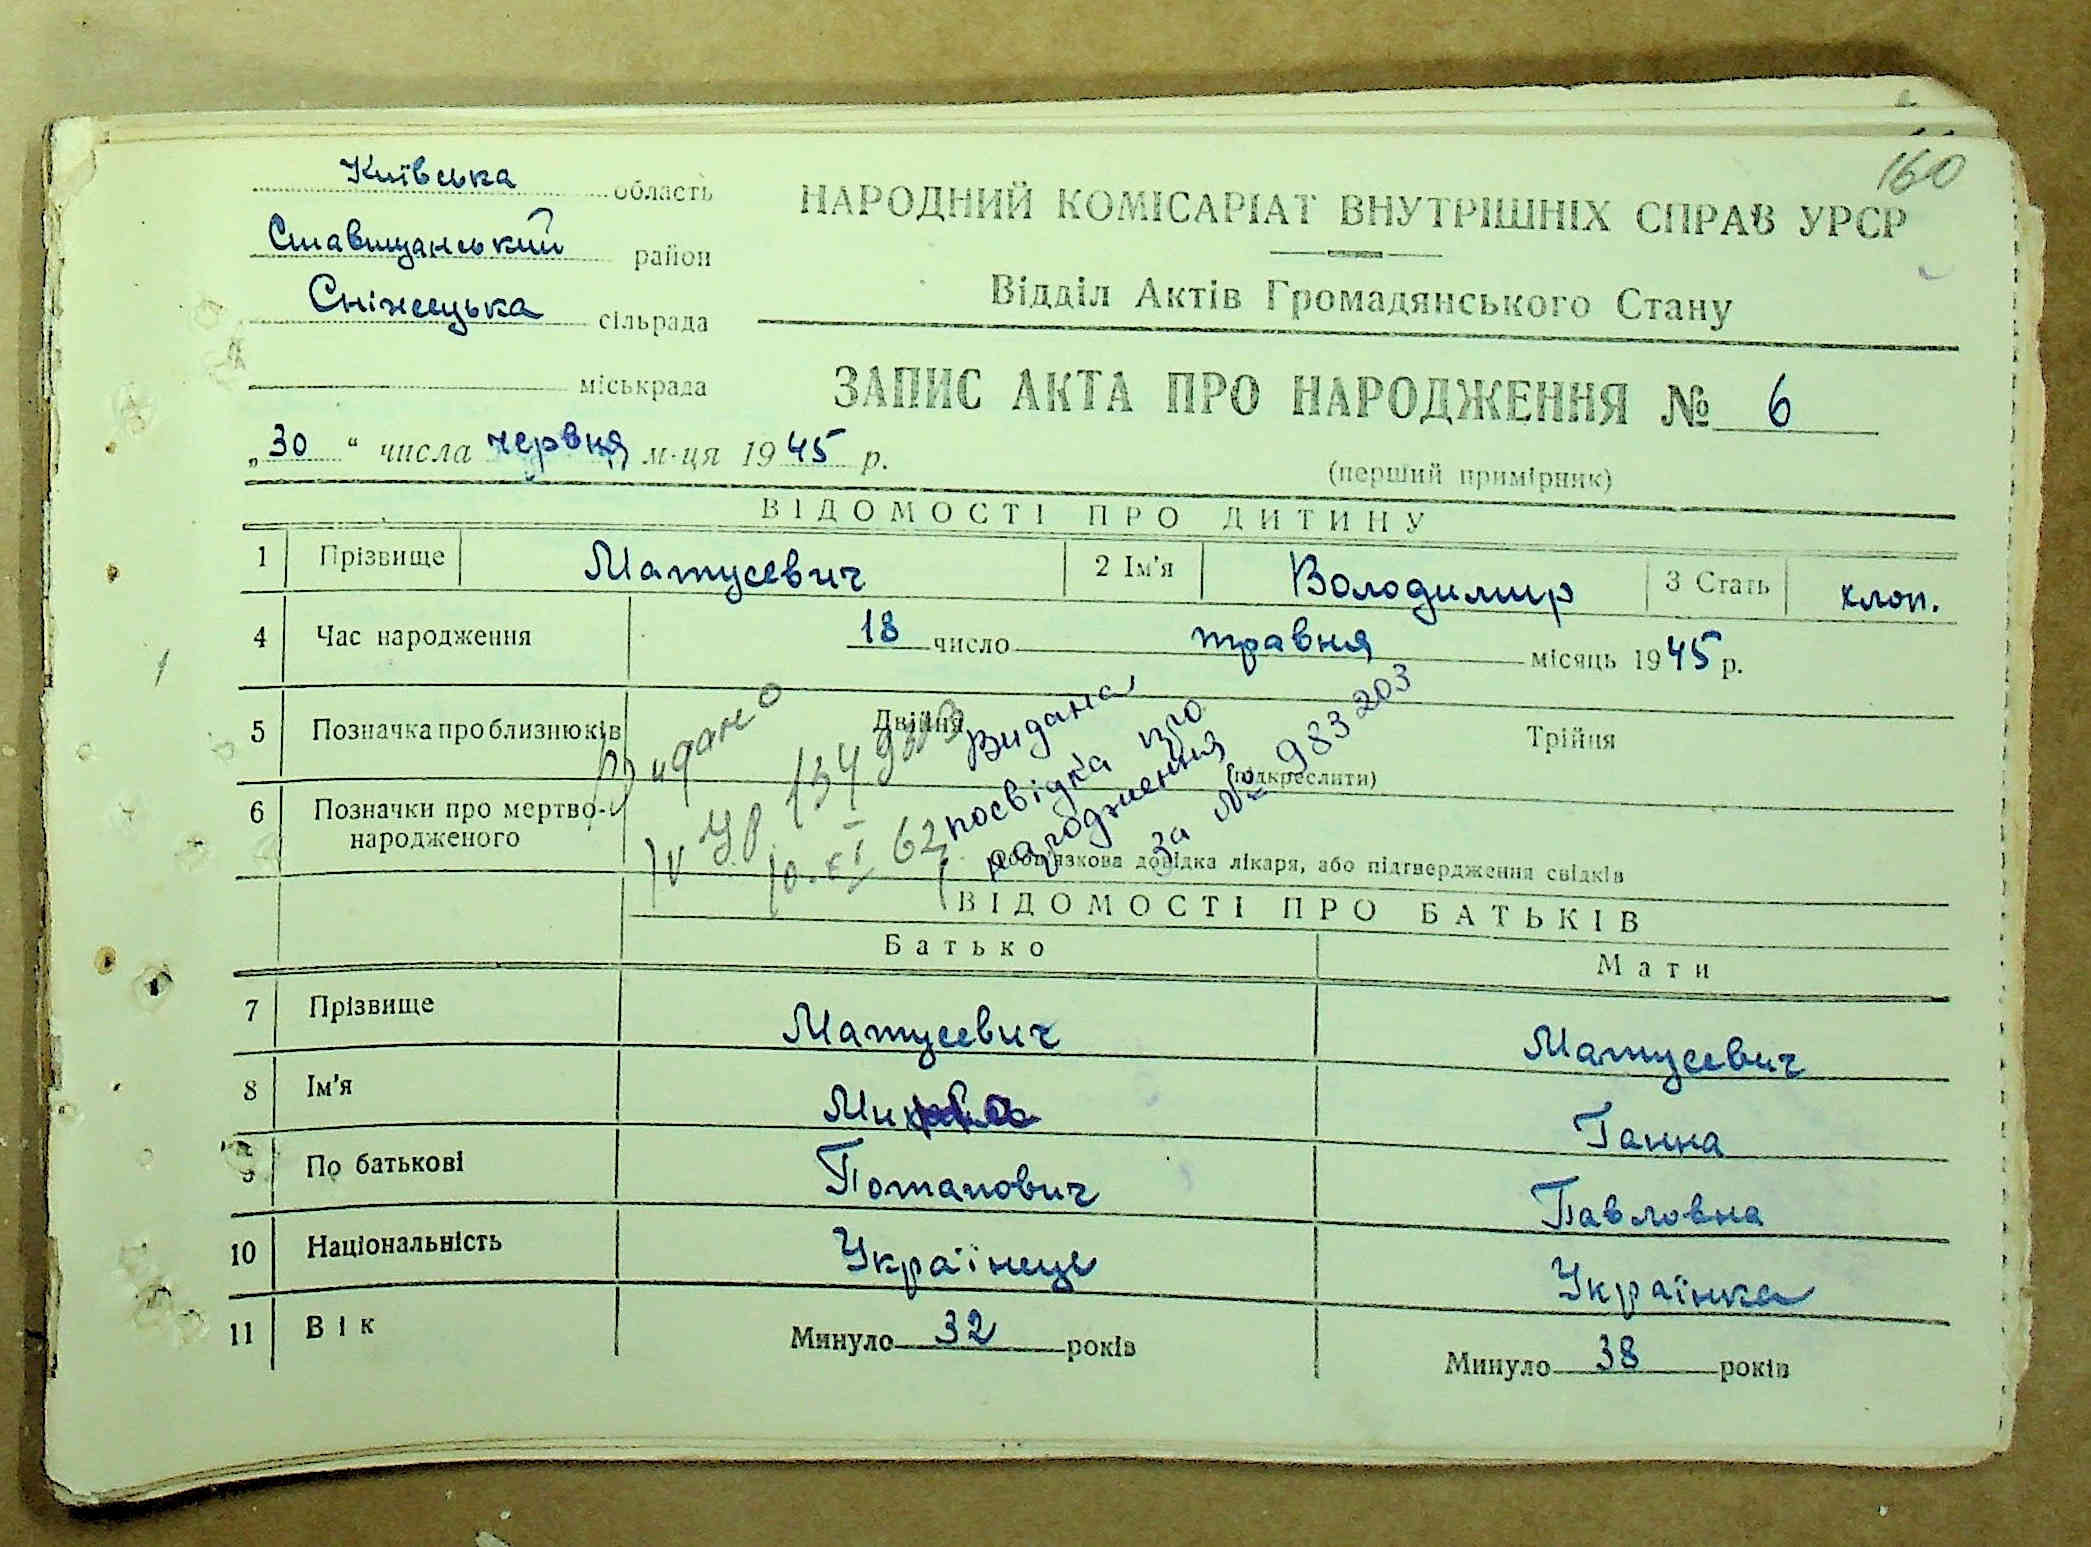 160
Київська область
Ставищанський район
Сніжецька сільрада
міськрада
НАРОДНИЙ КОМІСАРІАТ ВНУТРІШНІХ СПРАВ УРСР
Відділ Актів Громадянського Стану
ЗАПИС АКТА ПРО НАРОДЖЕННЯ № 6
„30“ числа червня м-ця 1945 р.
(перший примірник)
ВІДОМОСТІ ПРО ДИТИНУ
1 Прізвище Матусевич 2 Ім'я Володимир 3 Стать хлоп.
4 Час народження 18 число травня місяць 1945 р.
5 Позначка про близнюків Двійня Трійня
(підкреслити)
Видано
10. XI 62
Видана
посвідка про
народження
за № 983203
6 Позначки про мертво-
народженого
довідка лікаря, або підтвердження свідків
ВІДОМОСТІ ПРО БАТЬКІВ
Батько Мати
7 Прізвище Матусевич Матусевич
8 Ім'я Ганна
9 По батькові Потапович Павловна
10 Національність Українець Українка
11 Вік Минуло 32 років Минуло 38 років